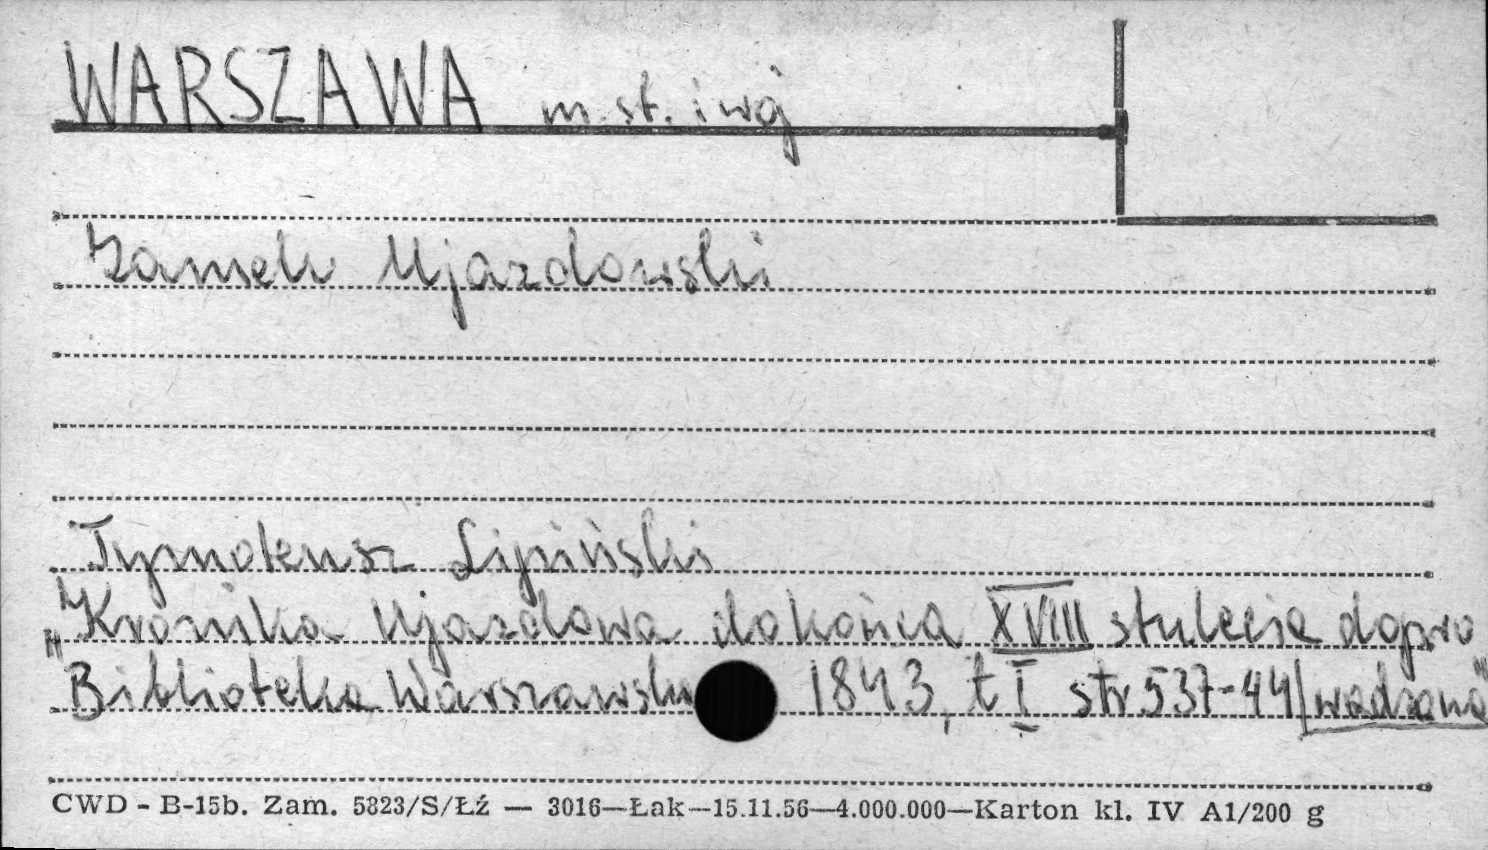 WARSZAWA m. st. i wg
Zamek Ujazdowski
Tymoteusz Lipiński
„Kronika Ujazdowa do końca XVIII stulecia dopro
Biblioteka Warszawska 1843, t I str 537-44 wadzona"
CWD - B-15b. Zam. 5823/S/Łź — 3016—Łak—15.11.56—4.000.000—Karton kl. IV A1/200 g